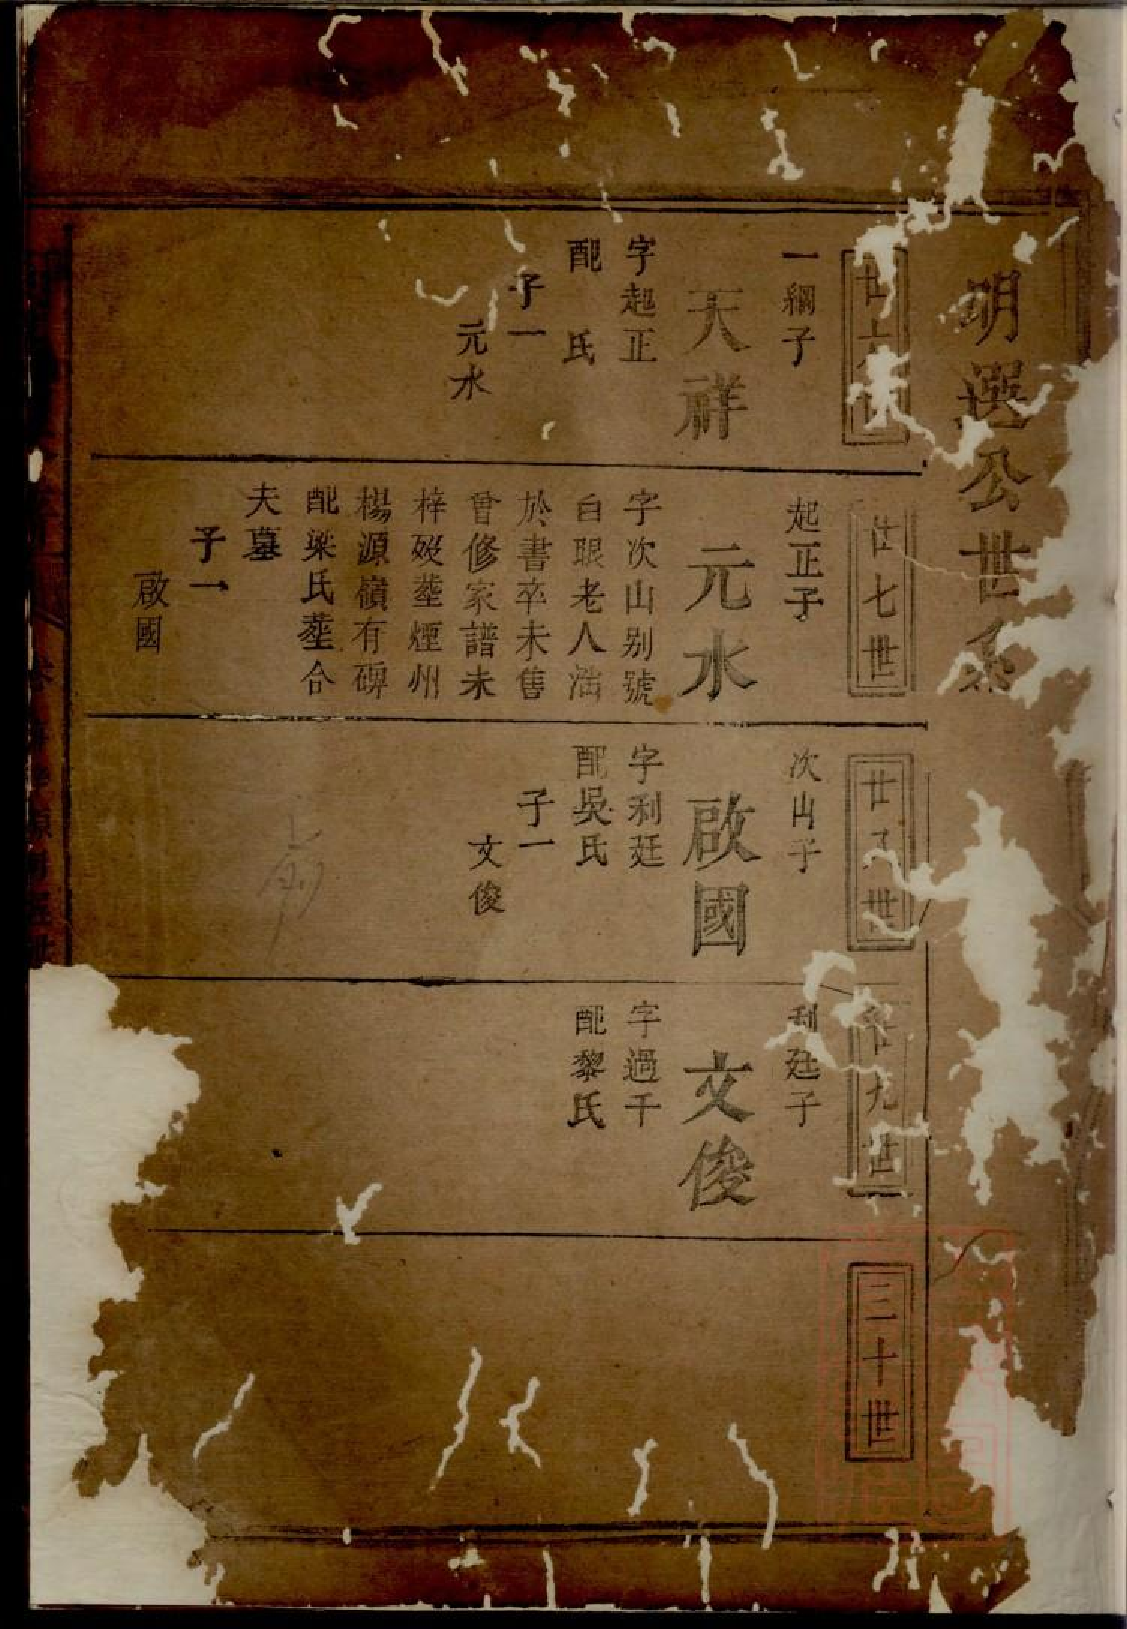 明選公世系
廿六世
一綱子
天祥
字起正
配 氏
子一
元水
廿七世
起正子
元水
字次山别號
白眼老人潜
於書卒未售
曾修家譜未
梓歿塟煙州
楊源嶺有碑
配梁氏塟合
夫墓
子一
啟國
廿八世
次山子
啟國
字利廷
配吳氏
子一
文俊
廿九世
利廷子
文俊
字過千
配黎氏
三十世